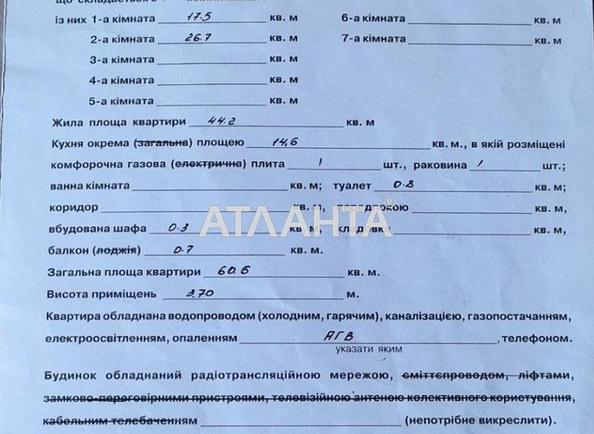 із них 1-а кімната 17.5 кв. м 6-а кімната кв. м
2-а кімната 26.7 кв. м 7-а кімната кв. м
3-а кімната кв. м
4-а кімната кв. м
5-а кімната кв. м
Жила площа квартири 44.2 кв. м
Кухня окрема (загальна) площею 14,6 кв. м., в якій розміщені
комфорочна газова (електрична) плита 1 шт., раковина 1 шт.;
ванна кімната кв. м; туалет 0.8 кв. м;
коридор кв. м, кв. м,
вбудована шафа 0.3 кв. м, кв. м,
АТЛАНТА
балкон (лоджія) 0.7 кв. м.
Загальна площа квартири 60.6 кв. м.
Висота приміщень 3,70 м.
Квартира обладнана водопроводом (холодним, гарячим), каналізацією, газопостачанням,
електроосвітленням, опаленням АГВ , телефоном.
указати яким
Будинок обладнаний радіотрансляційною мережою, сміттєпроводом, ліфтами,
замково-переговірними пристроями, телевізійною антеною колективного користування,
кабельним телебаченням (непотрібне викреслити).